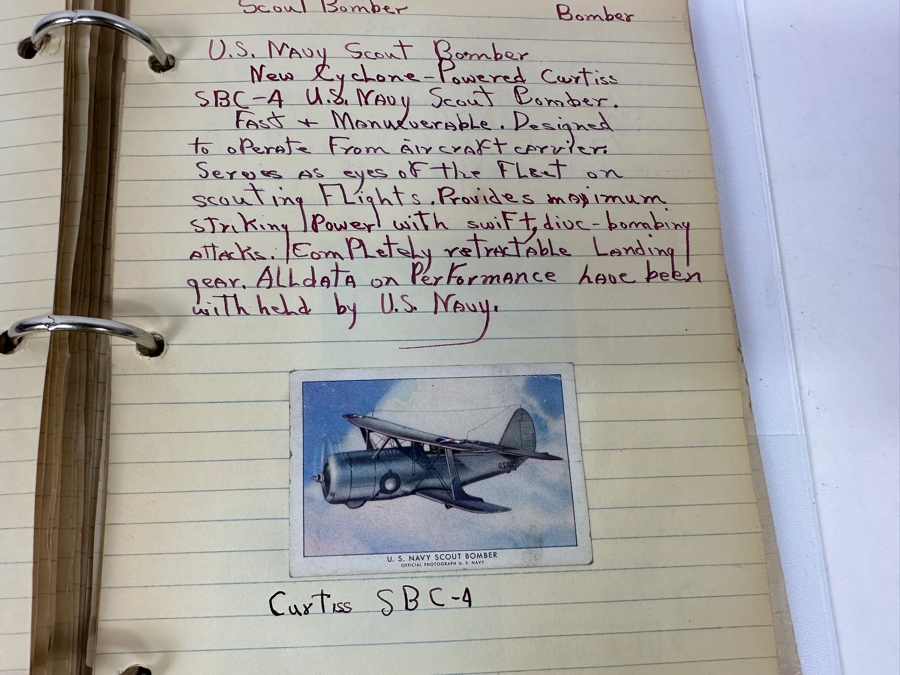 Scout Bomber Bomber
U.S. Navy Scout Bomber
New Cyclone-Powered Curtiss
SBC-4 U.S. Navy Scout Bomber.
Fast + Manueverable. Designed
to operate From aircraft carrier.
Serves as eyes of the Fleet on
scouting Flights. Provides maximum
striking Power with swift, dive-bombing
attacks. Completely retractable Landing
gear. All data on Performance have been
withheld by U.S. Navy.
U. S. NAVY SCOUT BOMBER
OFFICIAL PHOTOGRAPH U. S. NAVY
Curtiss SBC-4